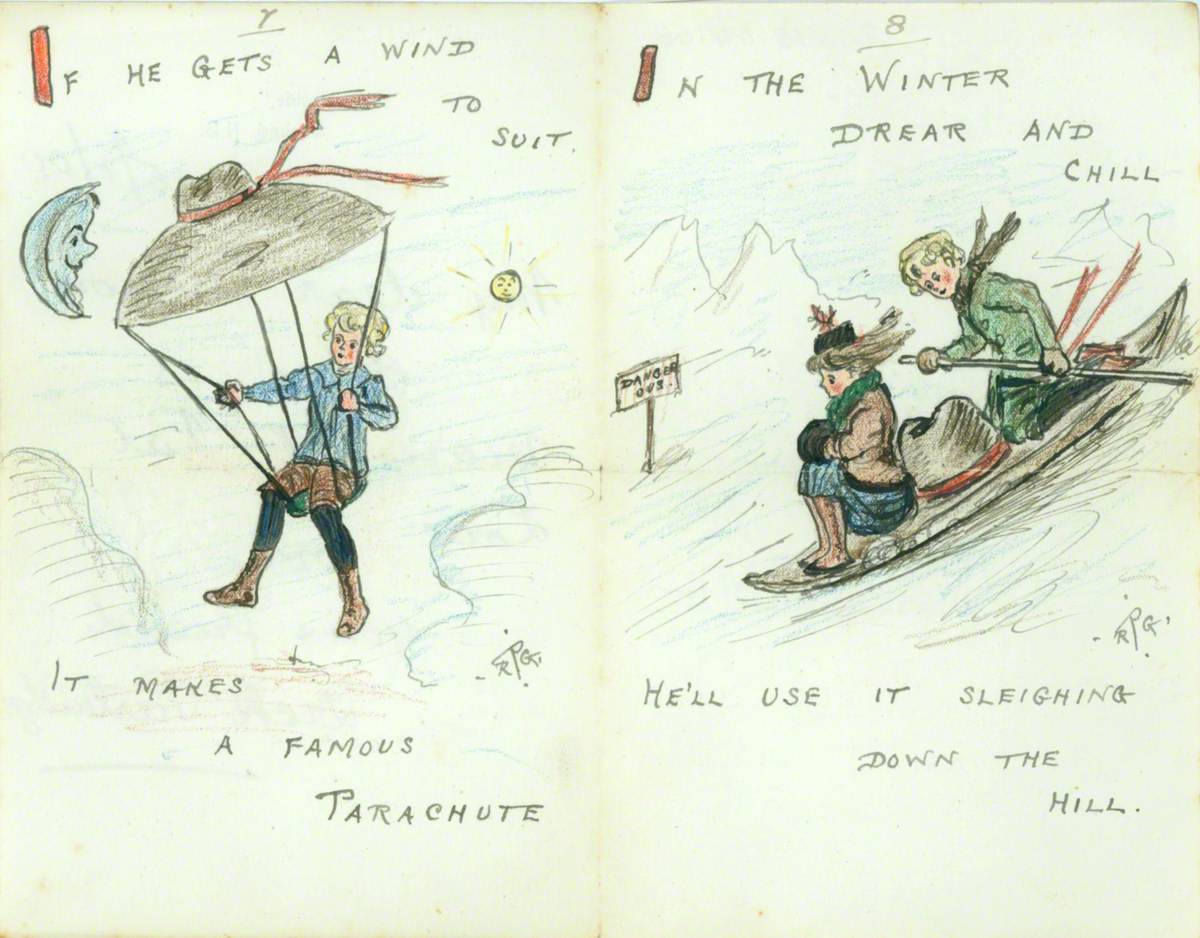 7
IF HE GETS A WIND
TO
SUIT.
RPG
IT MAKES
A FAMOUS
PARACHUTE
8
IN THE WINTER
DREAR AND
CHILL
DANGER
OUS.
RPG
HE'LL USE IT SLEIGHING
DOWN THE
HILL.